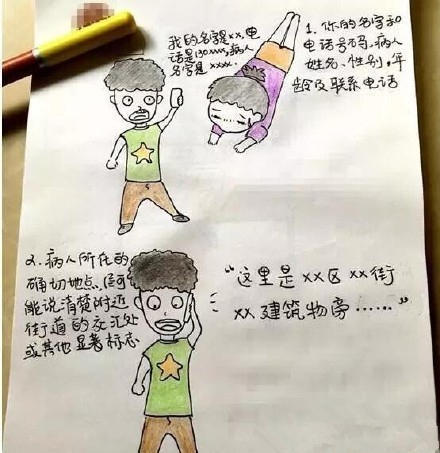 我的名字是xx,电
话是130xxxx,病人
名字是
xxxx.
1.你的名字和
电话号码,病人
姓名、性别,年
龄及联系电话
2.病人所在的
确切地点,尽可
能说清楚附近
街道的交汇处
或其他显著标志
“这里是xx区xx街
xx建筑物旁……”